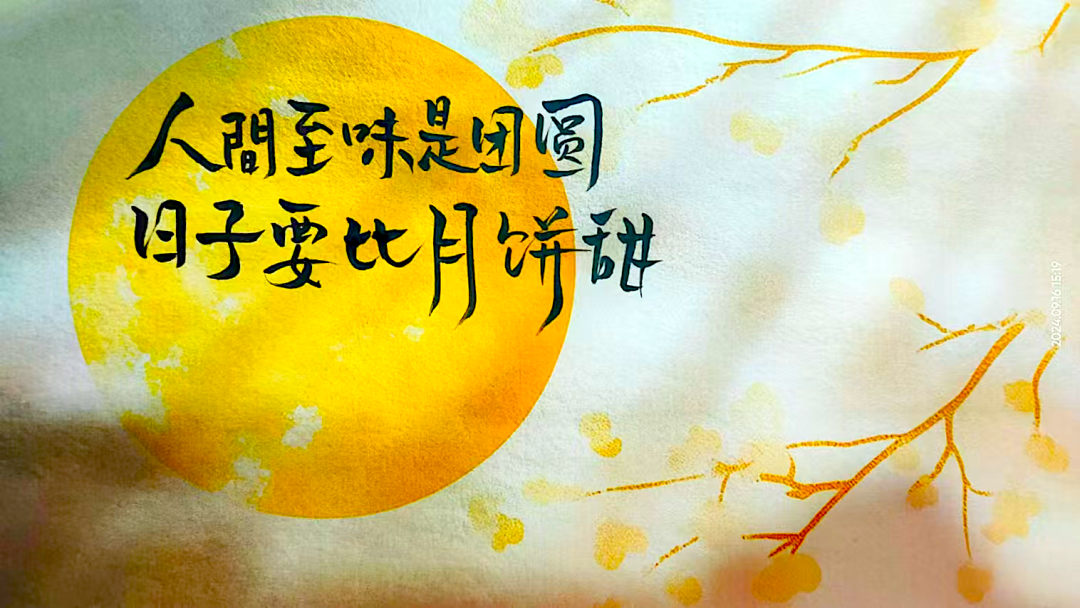 人間至味是团圓
日子要比月饼甜
2024.09.16 15:19